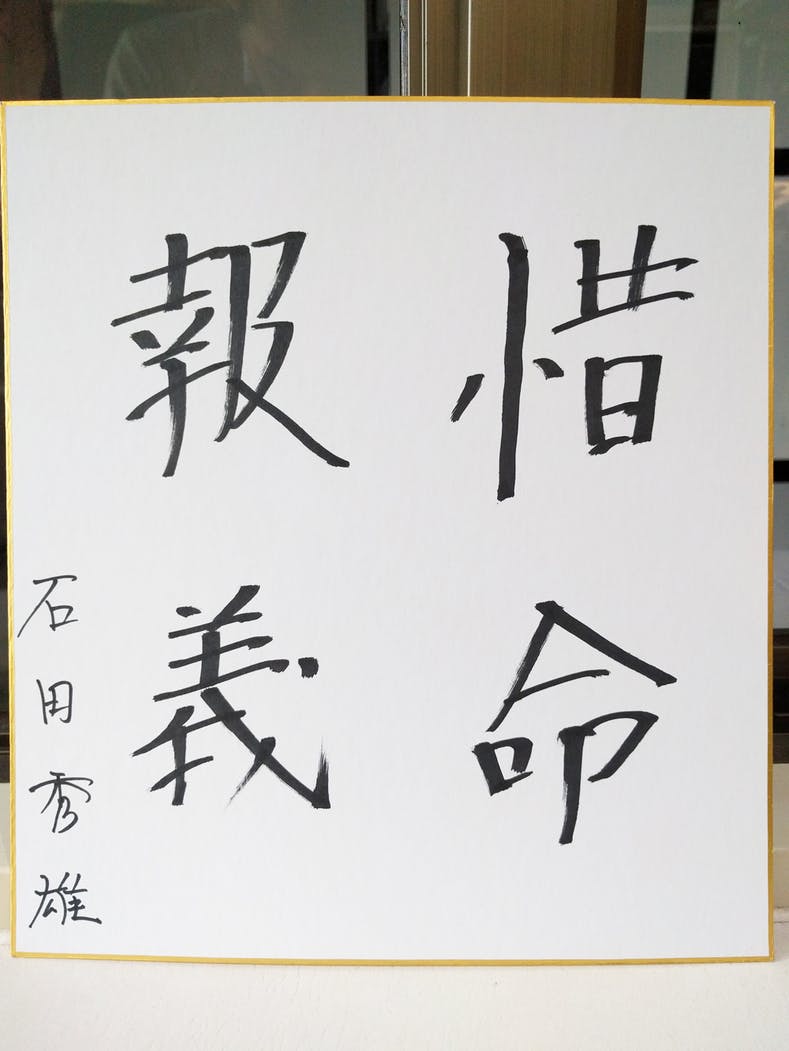 惜命
報義
石田秀雄